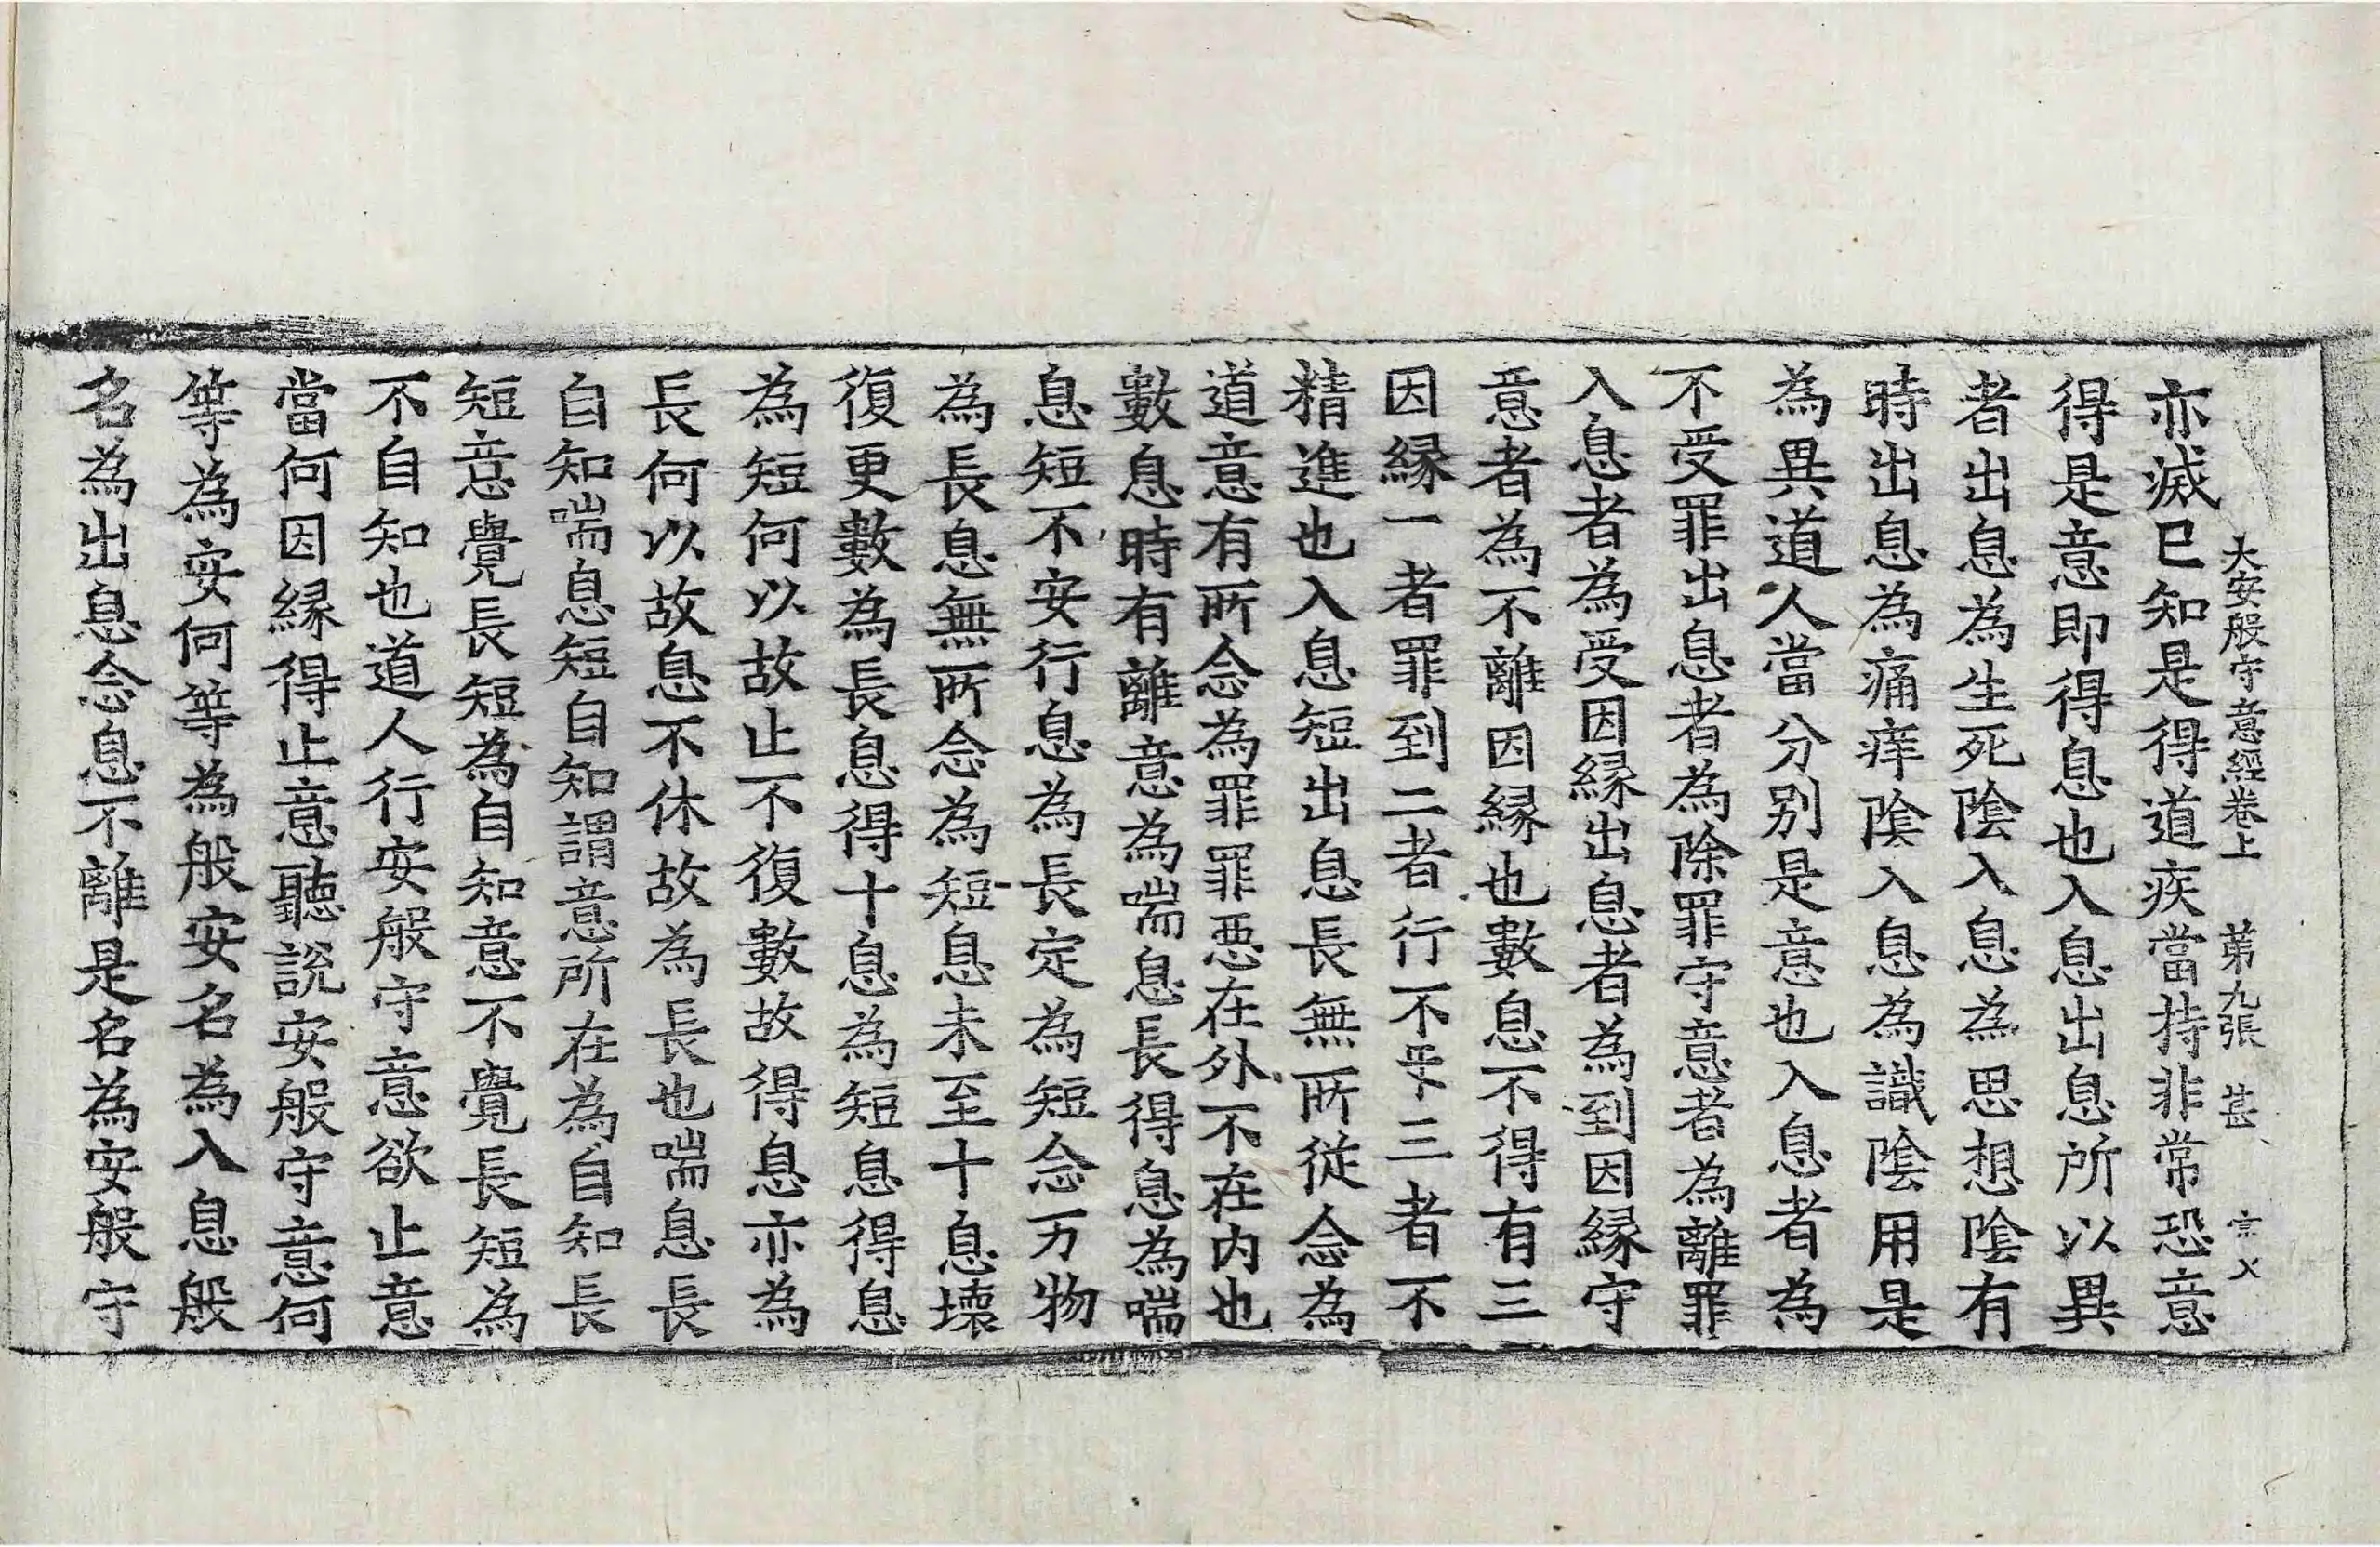 大安般守意經卷上 苐九張 甚 宗乂
亦滅已知是得道疾當持非常恐意
得是意即得息也入息出息所以異
者出息為生死陰入息為思想陰有
時出息為痛痒陰入息為識陰用是
為異道人當分别是意也入息者為
不受罪出息者為除罪守意者為離罪
入息者為受因縁出息者為到因縁守
意者為不離因縁也數息不得有三
因縁一者罪到二者行不三者不
精進也入息短出息長無所從念為
道意有所念為罪罪惡在外不在内也
數息時有離意為喘息長得息為喘
息短不安行息為長定為短念万物
為長息無所念為短息未至十息壞
復更數為長息得十息為短息得息
為短何以故止不復數故得息亦為
長何以故息不休故為長也喘息長
自知喘息短自知謂意所在為自知長
短意覺長短為自知意不覺長短為
不自知也道人行安般守意欲止意
當何因縁得止意聽說安般守意何
等為安何等為般安名為入息般
名為出息念息不離是名為安般守